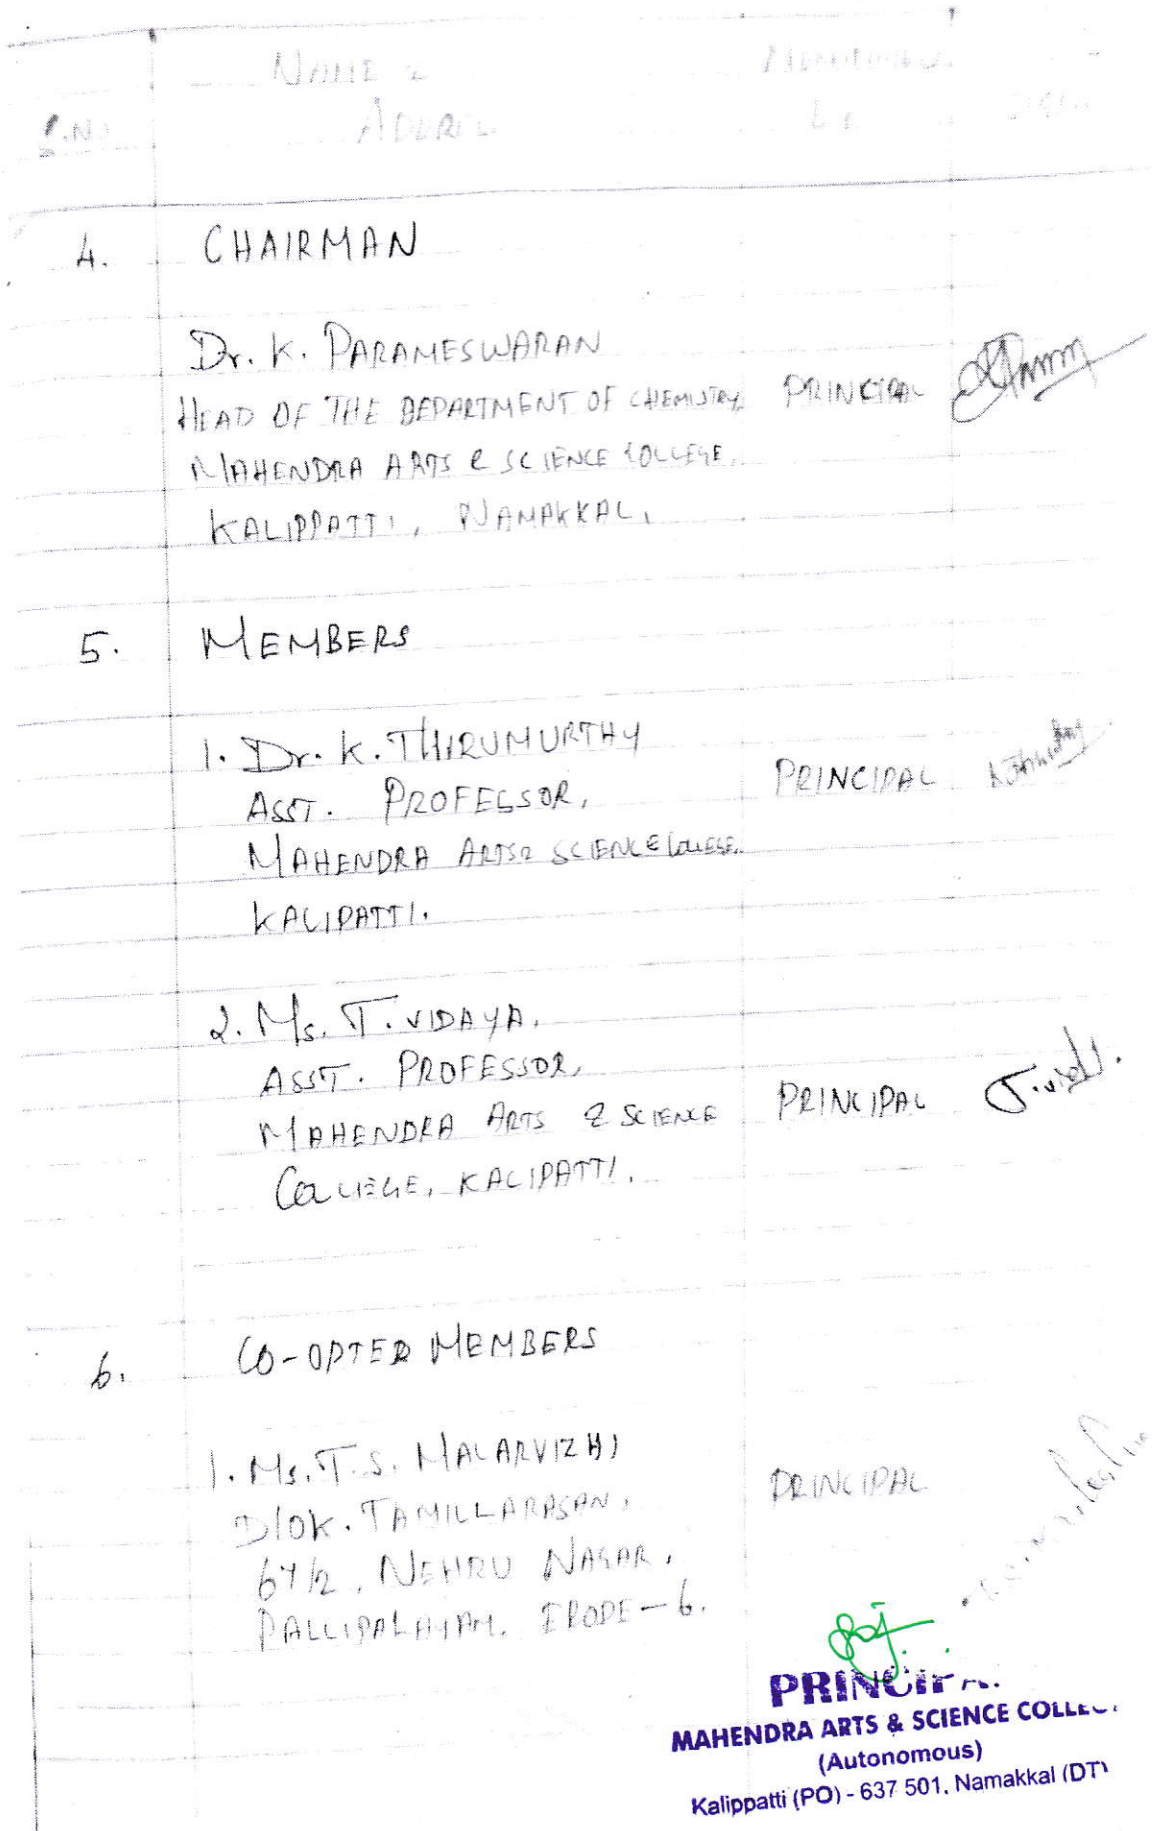 S.No
NAME &
ADDRE
4.
CHAIRMAN
Dr. K. PARAMESWARAN
HEAD OF THE DEPARTMENT OF CHEMISTRY, PRINCIPAL
MAHENDRA ARTS & SCIENCE COLLEGE,
KALIPPATTI, NAMAKKAL,
5.
MEMBERS
1. Dr. K. THIRUMURTHY
ASST. PROFESSOR, PRINCIPAL
MAHENDRA ARTS & SCIENCE COLLEGE,
KALIPATTI.
2. Ms. T. VIDAYA,
ASST. PROFESSOR,
MAHENDRA ARTS & SCIENCE PRINCIPAL
COLLEGE, KALIPATTI.
6.
CO-OPTED MEMBERS
1. Ms. T. S. MALARVIZHI
D/OK. TAMILLARASAN, PRINCIPAL
NEHRU NAGAR,
PALLIPALAYAM. ERODE-6.
PRINCIPA
MAHENDRA ARTS & SCIENCE COLLE
(Autonomous)
Kalippatti (PO) - 637 501. Namakkal (DT)